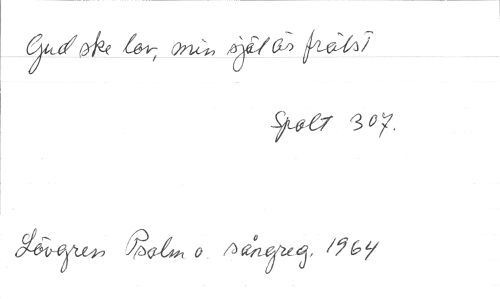 Gud ske lov, min själ är frälst
Spalt 307.
Lövgren Psalm o. sångreg. 1964